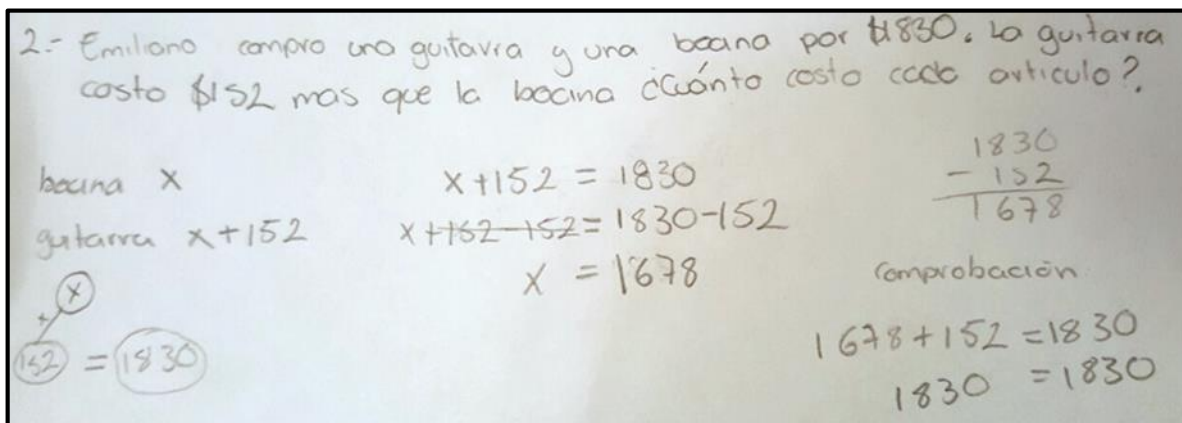 2.- Emiliano compro una guitarra y una bocina por $1830. La guitarra
costo $152 mas que la bocina ¿Cuánto costo cada articulo?
bocina x
guitarra x+152
x
+
152 = 1830
x+152 = 1830
x+152-152 = 1830-152
x = 1678
1830
- 152
1678
comprobación
1678+152 = 1830
1830 = 1830